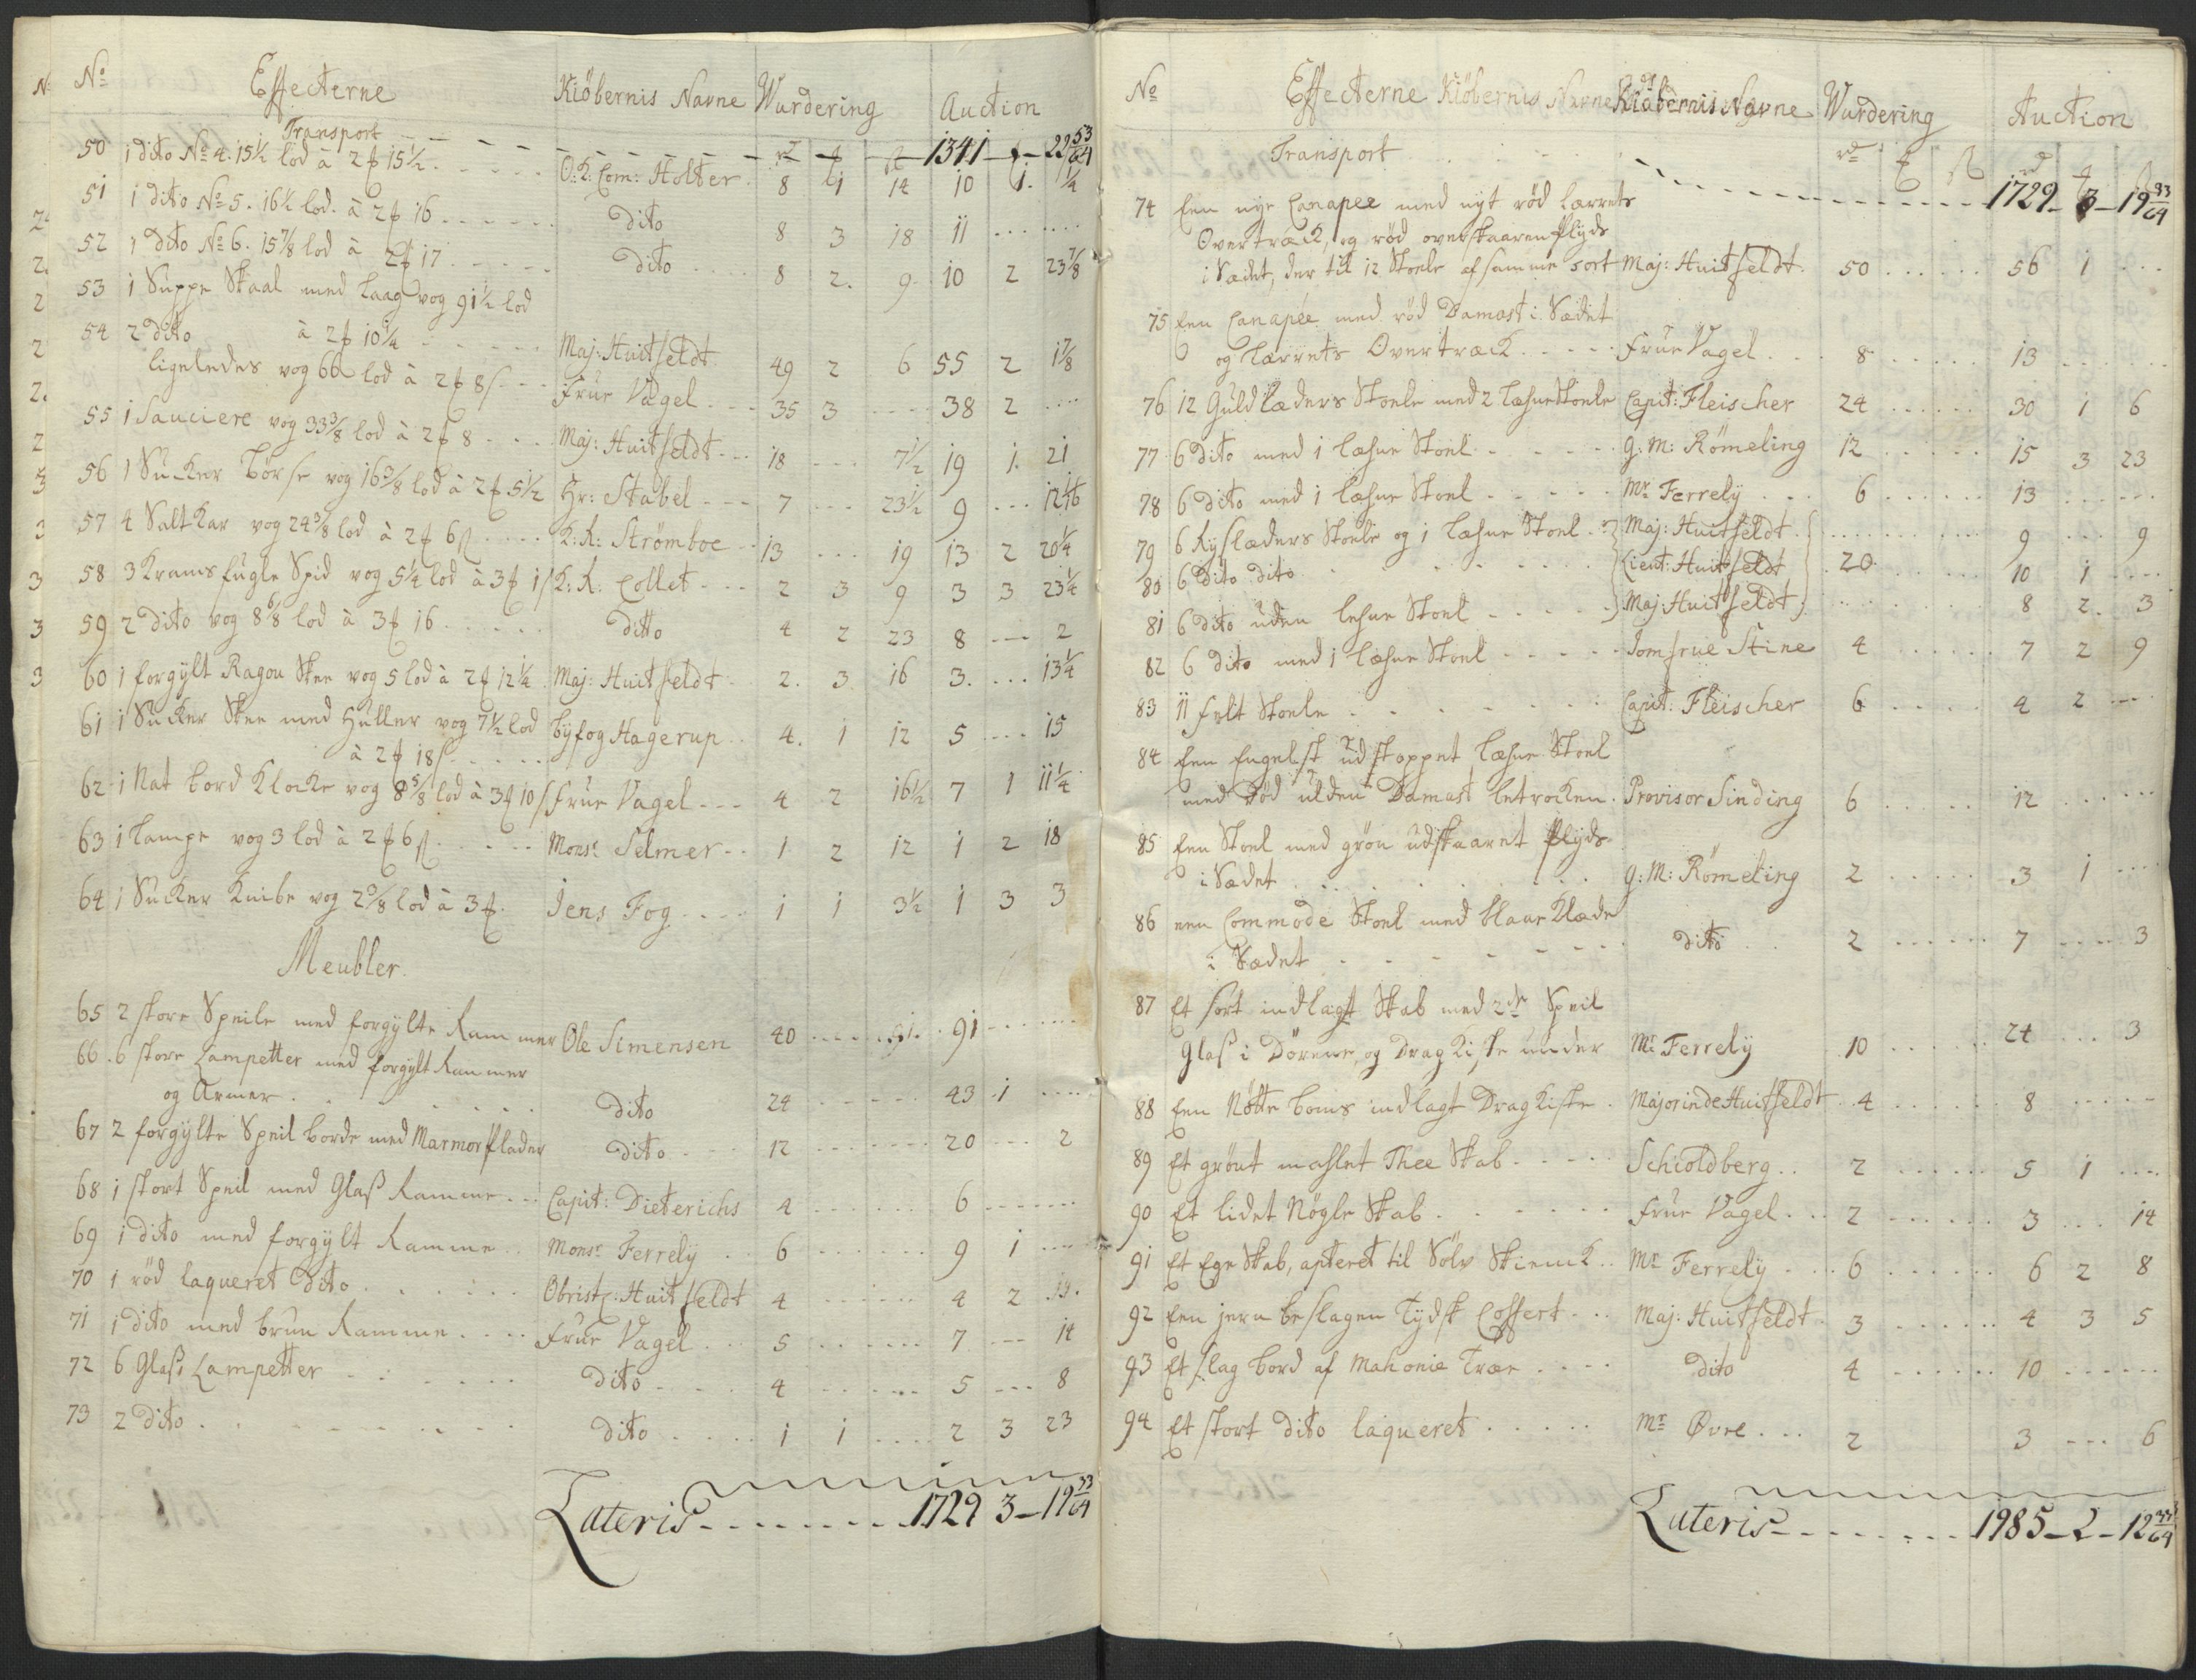 No Effecterne Kiöbernis Navne Wurdering Auction
Transport 1341 - 22 53/64
50 1 dito No 4. 15½ lod à 2 15½ O: K: Com: Holter 8 1 14 10 1. ¼
51 1 dito No 5. 16½ lod à 2 16 dito 8 3 18 11
52 1 dito No 6. 15⅞ lod à 2 17 dito 8 2. 9 10 2 23⅞
53 1 Suppe Skaal med Laag vog 91½ lod
à 2 10¼ Maj: Huitfeldt 49 2 6 55 2 1⅞
54 2 dito
ligeledes vog 66 lod à 2 8 Frue Vagel 35 3 38 2
55 1 Sauciere vog 33⅜ lod à 2 8 Maj: Huitfeldt 18 7½ 19 1. 21
56 1 Sucker Börse vog 16⅜ lod à 2 5½ Hr: Stabel 7 23½ 9 12 1/16
57 4 Saltkar vog 24⅜ lod à 2 6 K: K: Strömboe 13 19 13 2 20¼
58 3 Kramsfugle Spid vog 5¼ lod à 3 1 K: K: Collet 2 3 9 3 3 23¼
59 2 dito vog 8 6/8 lod à 3 16 ditto 4 2 23 8 2
60 1 forgylt Ragou Skee vog 5 lod à 2 12¼ Maj: Huitfeldt 2. 3 16 3. 13¼
61 1 Sucker Skee med Huller vog 7½ lod
à 2 18 Byfog Hagerup 4. 1 12 5 15
62 1 Nat bord Klocke vog 8⅝ lod à 3 10 Frue Vagel 4 2 16½ 7 1 11¼
63 1 Lampe vog 3 lod à 2 6 Monsr Selmer 1 2 12 1 2 18
64 1 Sucker Knibe vog 2⅜ lod à 3 Jens Fog 1 1 3½ 1 3 3
Meubler
65 2 store Speile med forgylte Rammer Ole Simensen 40 91
66 6 store Lampetter med forgylt Rammer
og Armer dito 24 43 1
67 2 forgylte Speil borde med Marmor Plader dito 12 20 2
68 1 stort Speil med Glaß Ramme Capit: Dieterichs 4 6
69 1 dito med forgylt Ramme Monsr Ferrely 6 9 1
70 1 röd laqueret dito Obristl: Huitfeldt 4 4 2 19
71 1 dito med brun Ramme Frue Vagel 5 7 14
72 6 Glaß Lampetter dito 4 5 8
73 2 dito dito 1 1 2 3 23
Lateris 1729 3 - 19 33/64
No Effecterne Kiöbernis Navne Kiöbernis Navne Wurdering Auction
Transport 1729 - 3 - 19 33/64
74 Een nye Canapee med nyt röd Lærrets
Overtræck, og röd overskaaren Plyds
i Sædet, der til 12 Stoele af samme sort Maj: Huitfeldt 50 56 1
75 Een Canapée med röd Damast i Sædet
og Lærrets Overtræck Frue Vagel 8 13
76 12 Guldlæders Stoele med 2 Læhne Stoele Capit: Fleischer 24 30 1 6
77 6 dito med 1 Læhne Stoel G: M: Römeling 12 15 3 23
78 6 dito med 1 Læhne Stoel Mr Ferrely 6 13
79 6 Ryslæders Stoele og 1 Læhne Stoel Maj: Huitfeldt 9 9
80 6 dito dito Lieut: Huitfeldt 20 10 1
81 6 dito uden Lehne Stoel Maj: Huitfeldt 8 2. 3
82 6 dito med 1 Læhne Stoel Jomfrue Stine 4 7 2 9
83 11 felt Stoele Capit: Fleischer 6 4 2
84 Een Engelsk udstoppet Læhne Stoel
med röd ulden Damast betrocken Provisor Sinding 6 12
85 Een Stoel med grön udskaaret Plyds
i Sædet G: M: Römeling 2 3 1
86 een Commode Stoel med blaae Klæde
i Sædet dito 2 7 3
87 Et sort indlagt Skab med 2de Speil
Glaß i Dörene, og Drag Kiste under Mr Ferrely 10 24 3
88 Een Nötte boms indlagt Drag Kiste Majorinde Huitfeldt 4 8
89 Et grönt mahlet Thee Skab Schioldberg 2 5 1
90 Et lidet Nögle Skab Frue Vagel 2 3 14
91 Et Ege Skab, apteret til Sölv Skienck Mr Ferrely 6 6 2 8
92 Een jern beslagen Tydsk Coffert Maj: Huitfeldt 3 4 3 5
93 Et slag bord af Mahonie Træe dito 4 10
94 Et stort dito laqueret Mr Øvre 2 3 6
Lateris 1985 - 2 - 12 33/64